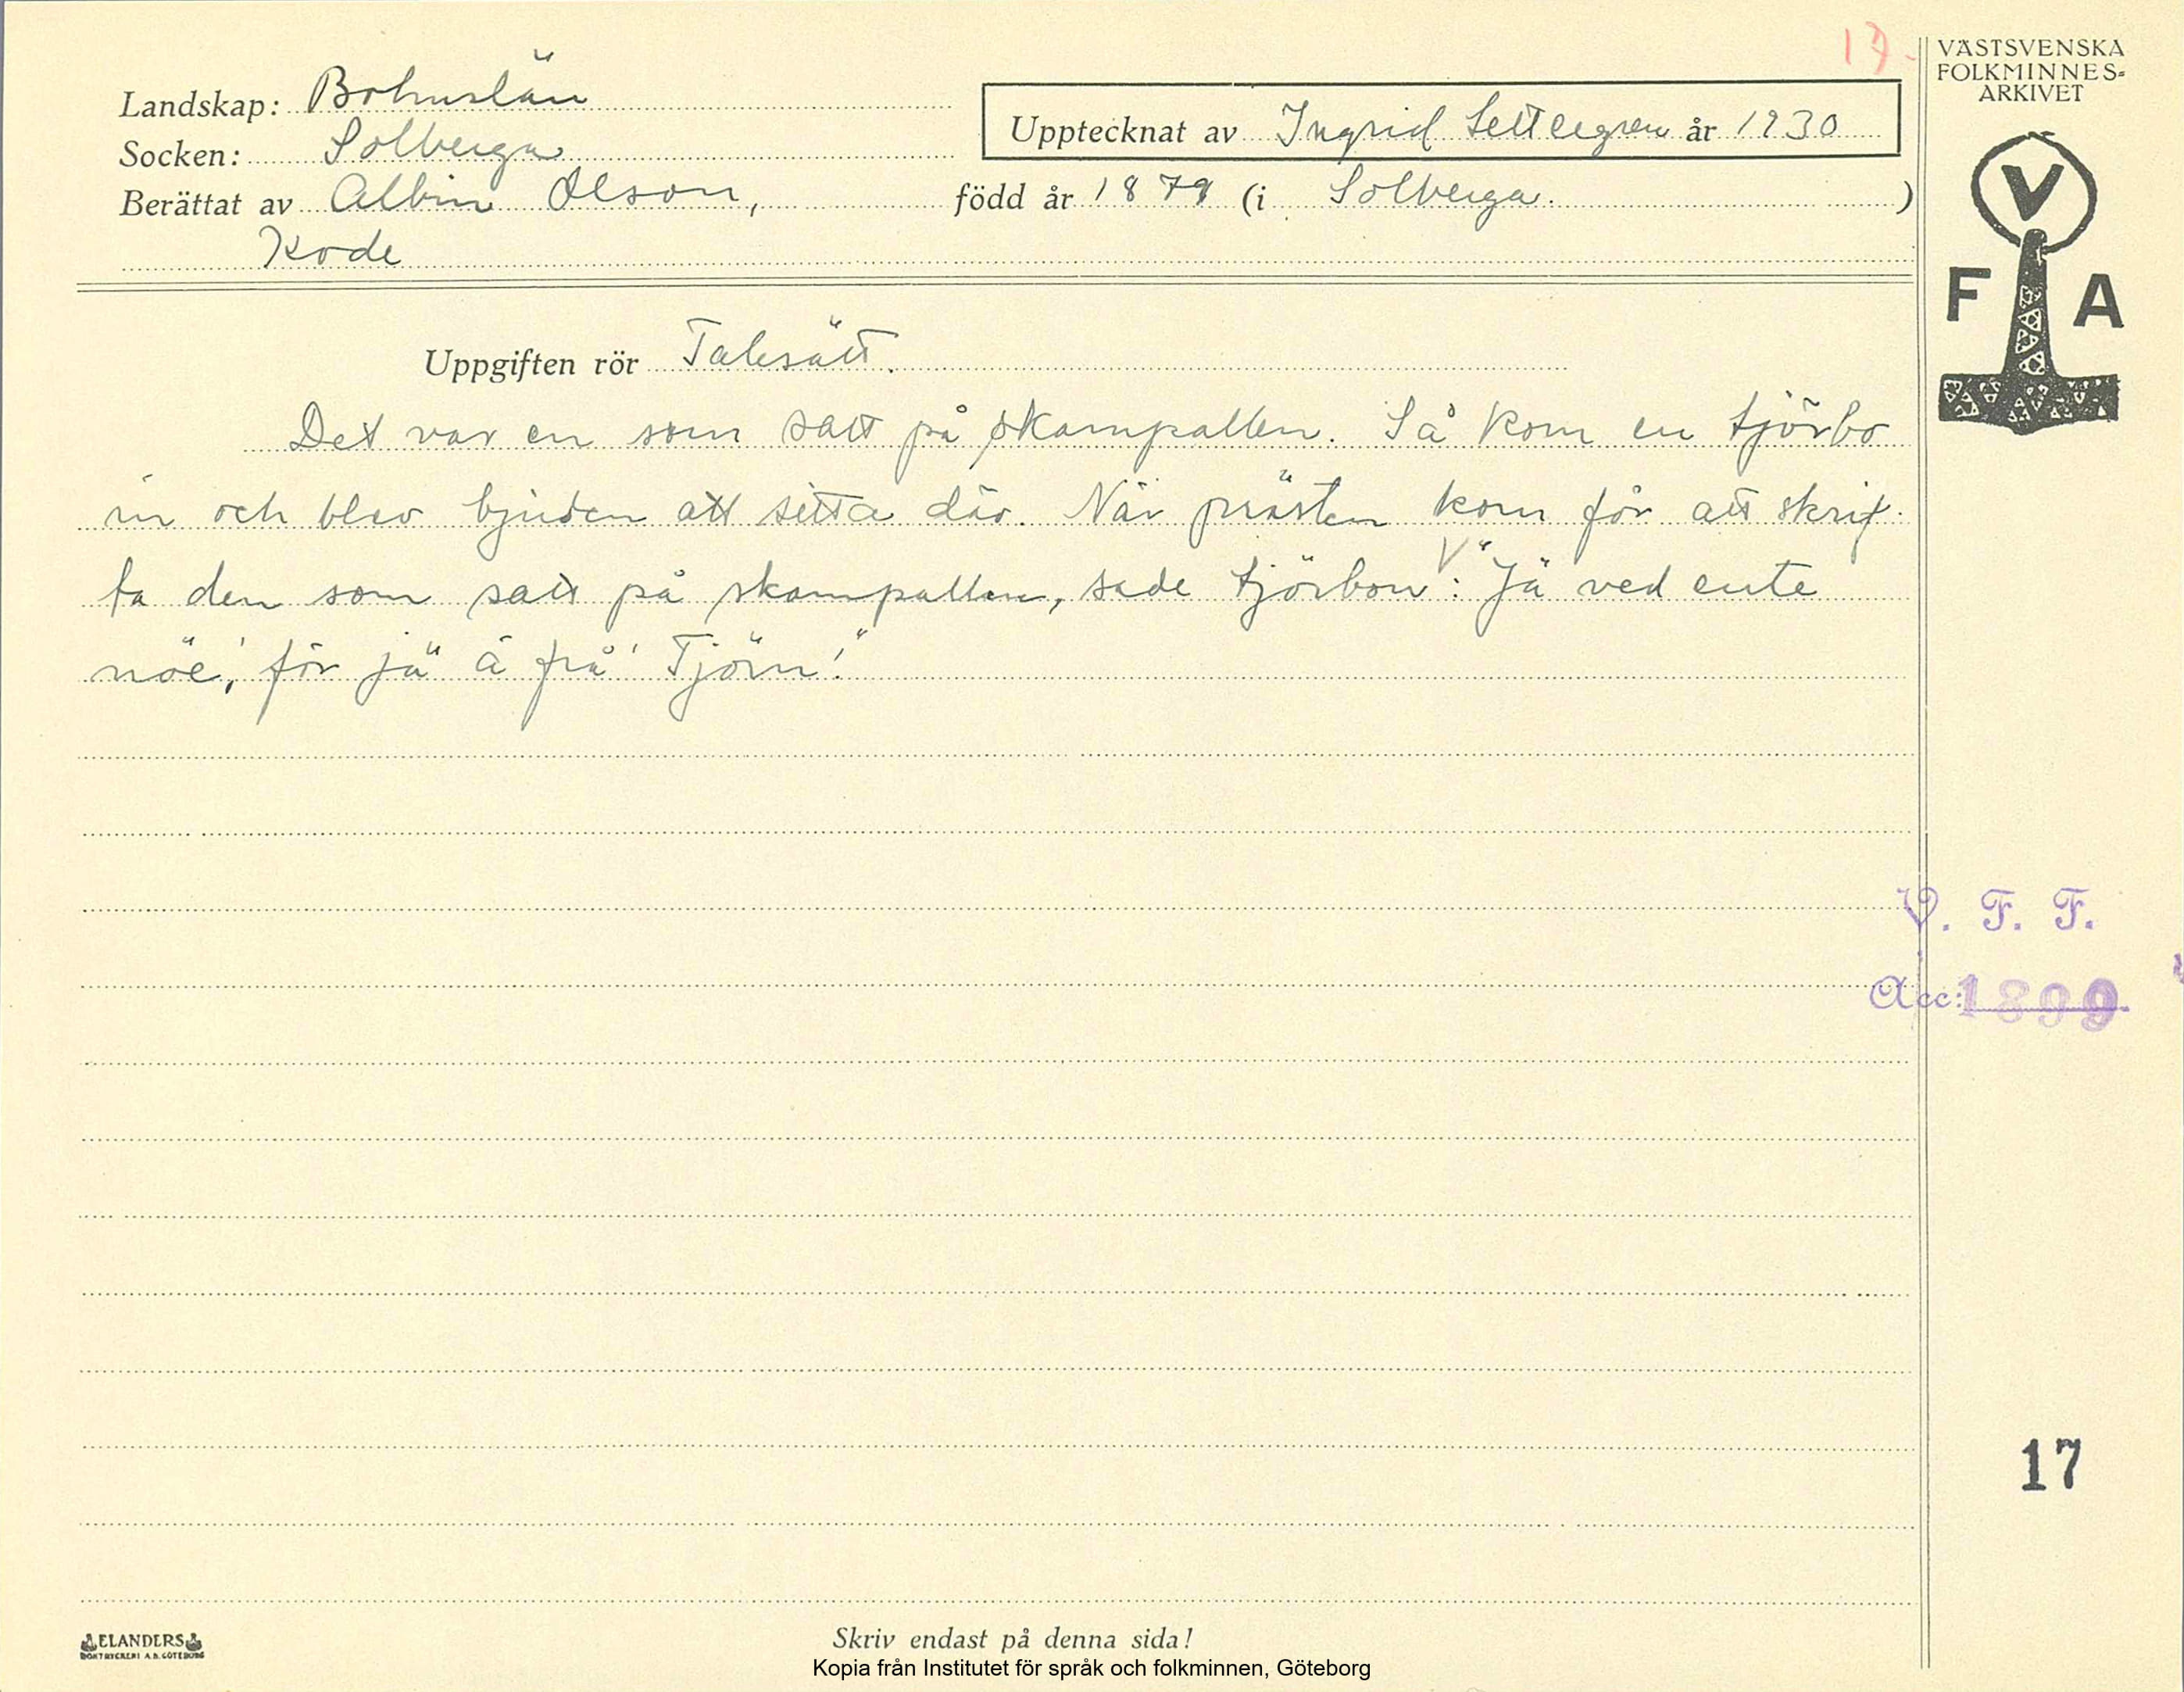 17.
VÄSTSVENSKA
FOLKMINNES=
ARKIVET
Landskap: Bohuslän
Upptecknat av Ingrid Settergren år 1930
Socken: Solberga
Berättat av Albin Olson, född år 1879 (i Solberga. )
Kode
V
F A
Uppgiften rör Talesätt.
Det var en som satt på skampallen. Så kom en tjörbo
in och blev bjuden att sitta där. När prästen kom för att skrif-
ta den som satt på skampallen, sade tjörbon: "Jä ved ente
nöe', för jä ä frå' Tjörn!"
V. F. F.
Acc: 1899
17
ELANDERS
BOKTRYCKERI A.B. GÖTEBORG
Skriv endast på denna sida!
Kopia från Institutet för språk och folkminnen, Göteborg